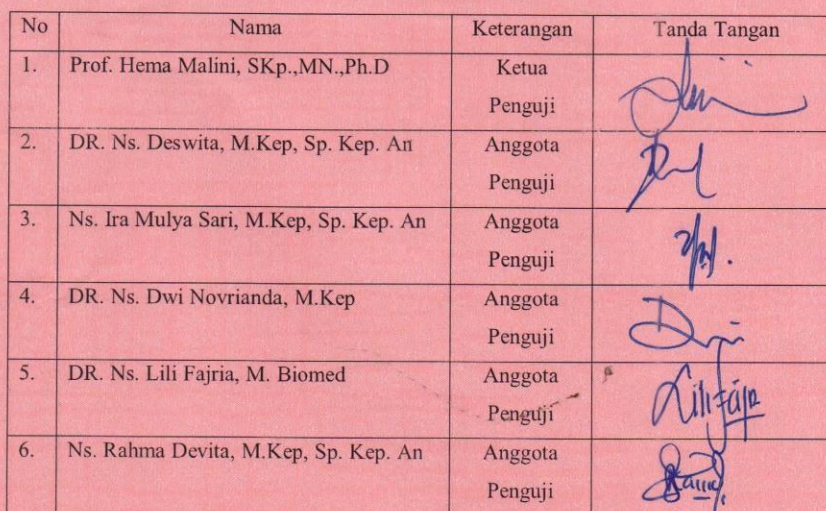 No Nama Keterangan Tanda Tangan
1. Prof. Hema Malini, SKp.,MN.,Ph.D Ketua
Penguji
2. DR. Ns. Deswita, M.Kep, Sp. Kep. An Anggota
Penguji
3. Ns. Ira Mulya Sari, M.Kep, Sp. Kep. An Anggota
Penguji
4. DR. Ns. Dwi Novrianda, M.Kep Anggota
Penguji
5. DR. Ns. Lili Fajria, M. Biomed Anggota
Penguji
6. Ns. Rahma Devita, M.Kep, Sp. Kep. An Anggota
Penguji